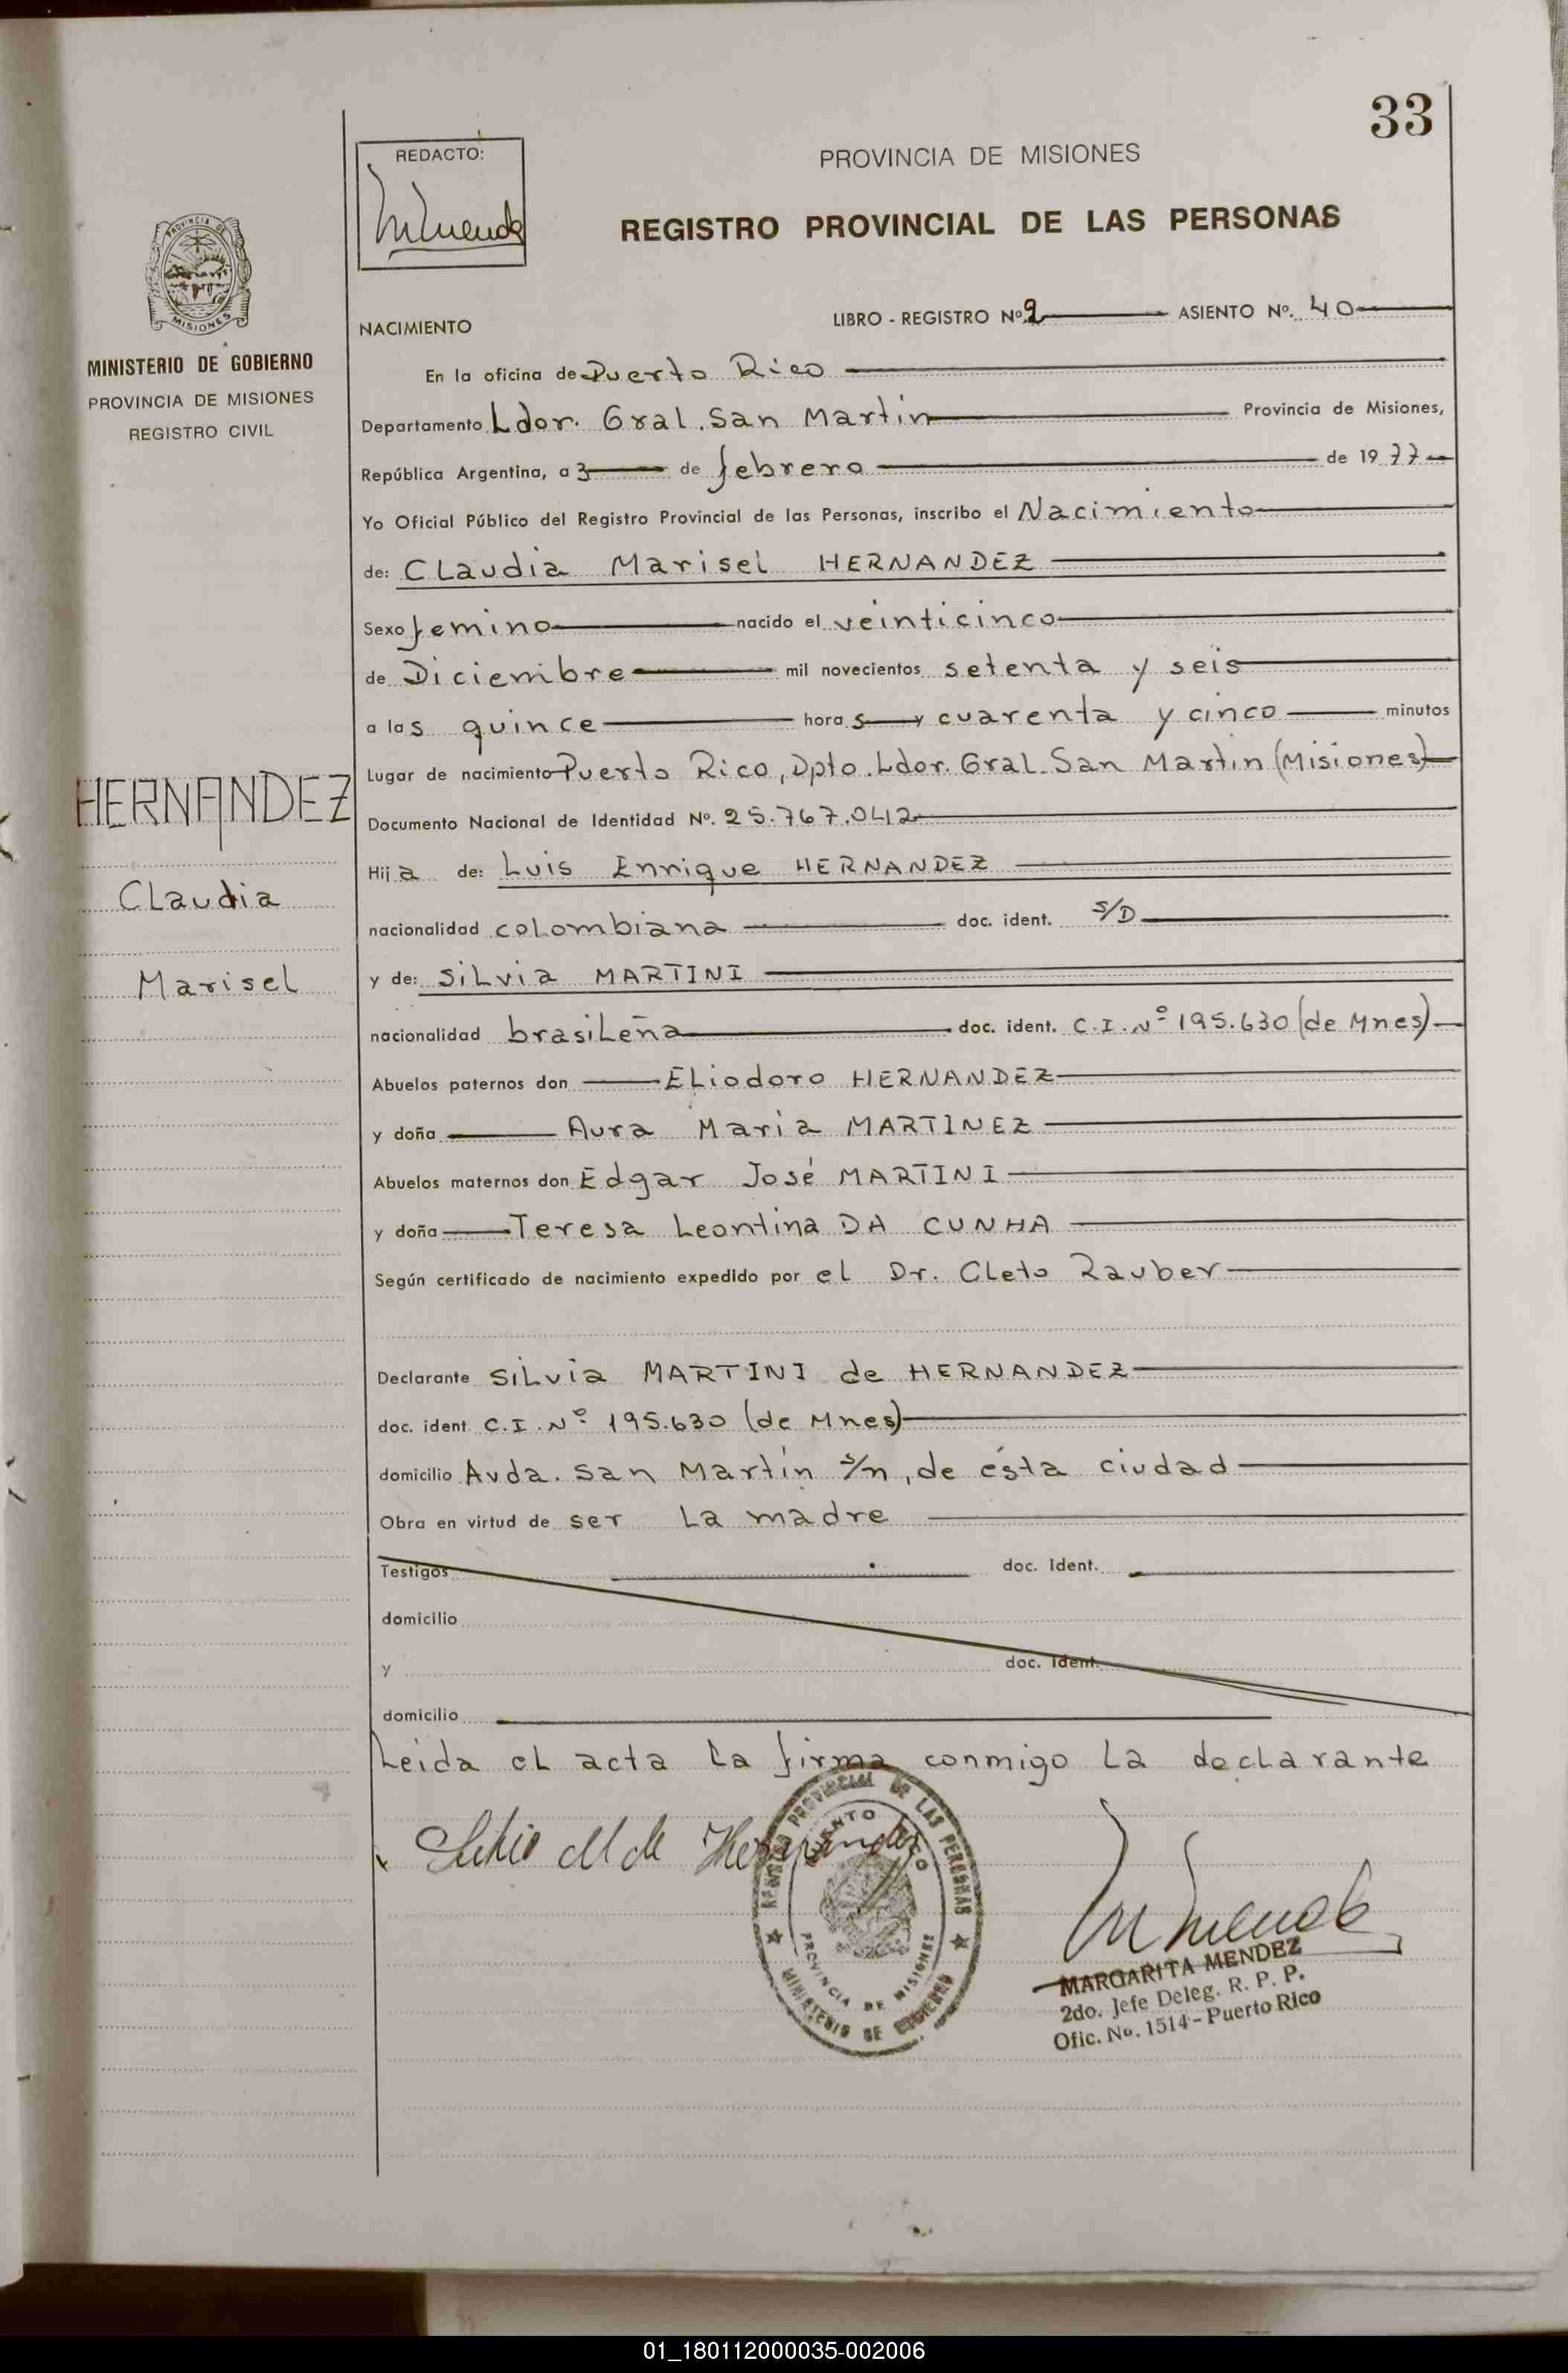 33
REDACTO:
PROVINCIA DE MISIONES
REGISTRO PROVINCIAL DE LAS PERSONAS
PROVINCIA DE
MISIONES
MINISTERIO DE GOBIERNO
PROVINCIA DE MISIONES
REGISTRO CIVIL
HERNANDEZ
Claudia
Marisel
NACIMIENTO LIBRO - REGISTRO Nº 2 ASIENTO Nº. 40
En la oficina de Puerto Rico
Departamento Ldor. Gral. San Martin Provincia de Misiones,
República Argentina, a 3 de febrero de 1977
Yo Oficial Público del Registro Provincial de las Personas, inscribo el Nacimiento
de: Claudia Marisel HERNANDEZ
Sexo femino nacido el veinticinco
de Diciembre mil novecientos setenta y seis
a las quince horas y cuarenta y cinco minutos
Lugar de nacimiento Puerto Rico, Dpto. Ldor. Gral. San Martin (Misiones)
Documento Nacional de Identidad Nº. 25.767.042
Hija de: Luis Enrique HERNANDEZ
nacionalidad colombiana doc. ident. S/D
y de: Silvia MARTINI
nacionalidad brasileña doc. ident. C.I. Nº 195.630 (de Mnes)
Abuelos paternos don Eliodoro HERNANDEZ
y doña Aura Maria MARTINEZ
Abuelos maternos don Edgar José MARTINI
y doña Teresa Leontina DA CUNHA
Según certificado de nacimiento expedido por el Dr. Cleto Rauber
Declarante Silvia MARTINI de HERNANDEZ
doc. ident. C.I. Nº 195.630 (de Mnes)
domicilio Avda. San Martín s/n, de ésta ciudad
Obra en virtud de ser la madre
Testigos doc. Ident.
domicilio
y doc. Ident.
domicilio
Leida el acta la firma conmigo la declarante
Silvia M de Hernandez
REGISTRO PROVINCIAL DE LAS PERSONAS
PROVINCIA DE MISIONES
MINISTERIO DE GOBIERNO
MARGARITA MENDEZ
2do. Jefe Deleg. R. P. P.
Ofic. No. 1514 - Puerto Rico
01_180112000035-002006